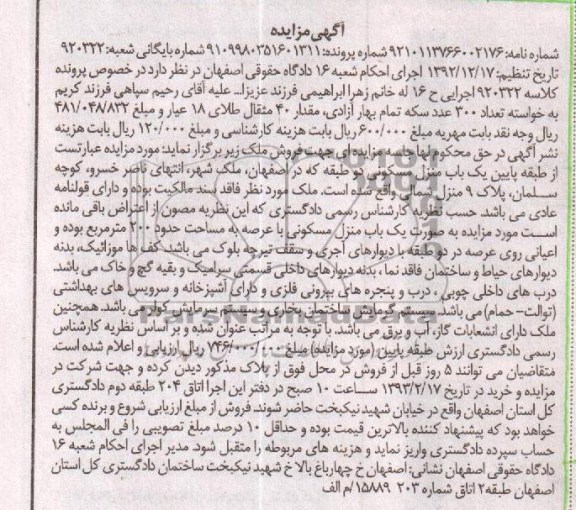 آگهی مزایده
شماره نامه: ۹۲۱۰۱۱۳۷۶۶۰۰۲۱۷۶ شماره پرونده: ۹۱۰۹۹۸۰۳۵۱۶۰۱۳۱۱ شماره بایگانی شعبه: ۹۲۰۳۲۲
تاریخ تنظیم: ۱۳۹۲/۱۲/۱۷ اجرای احکام شعبه ۱۶ دادگاه حقوقی اصفهان در نظر دارد در خصوص پرونده
کلاسه ۹۲۰۳۲۲ اجرایی ح ۱۶ له خانم زهرا ابراهیمی فرزند عزیزا... علیه آقای رحیم سپاهی فرزند کریم
به خواسته تعداد ۳۰۰ عدد سکه تمام بهار آزادی، مقدار ۴۰ مثقال طلای ۱۸ عیار و مبلغ ۴۸۱/۰۴۸/۸۳۲
ریال وجه نقد بابت مهریه مبلغ ۶۰۰/۰۰۰ ریال بابت هزینه کارشناسی و مبلغ ۱۲۰/۰۰۰ ریال بابت هزینه
نشر آگهی در حق محکوم لها جلسه مزایده ای جهت فروش ملک زیر برگزار نماید: مورد مزایده عبارتست
از طبقه پایین یک باب منزل مسکونی دو طبقه که در اصفهان، ملک شهر، انتهای ناصر خسرو، کوچه
سلمان، پلاک ۹ منزل شمالی واقع شده است. ملک مورد نظر فاقد سند مالکیت بوده و دارای قولنامه
عادی می باشد. حسب نظریه کارشناس رسمی دادگستری که این نظریه مصون از اعتراض باقی مانده
است مورد مزایده به صورت یک باب منزل مسکونی با عرصه به مساحت حدود ۲۰۰ مترمربع بوده و
اعیانی روی عرصه در دو طبقه با دیوارهای آجری و سقف تیرچه بلوک می باشد. کف ها موزائیک، بدنه
دیوارهای حیاط و ساختمان فاقد نما، بدنه دیوارهای داخلی قسمتی سرامیک و بقیه گچ و خاک می باشد.
درب های داخلی چوبی ، درب و پنجره های بیرونی فلزی و دارای آشپزخانه و سرویس های بهداشتی
(توالت- حمام) می باشد. سیستم گرمایش ساختمان بخاری و سیستم سرمایش کولر می باشد. همچنین
ملک دارای انشعابات گاز، آب و برق می باشد. با توجه به مراتب عنوان شده و بر اساس نظریه کارشناس
رسمی دادگستری ارزش طبقه پایین (مورد مزایده) مبلغ ۷۴۶/۰۰۰/۰۰۰ ریال ارزیابی و اعلام شده است.
متقاضیان می توانند ۵ روز قبل از فروش در محل فوق از پلاک مذکور دیدن کرده و جهت شرکت در
مزایده و خرید در تاریخ ۱۳۹۳/۲/۱۷ ساعت ۱۰ صبح در دفتر این اجرا اتاق ۲۰۴ طبقه دوم دادگستری
کل استان اصفهان واقع در خیابان شهید نیکبخت حاضر شوند. فروش از مبلغ ارزیابی شروع و برنده کسی
خواهد بود که پیشنهاد کننده بالاترین قیمت بوده و حداقل ۱۰ درصد مبلغ تصویبی را فی المجلس به
حساب سپرده دادگستری واریز نماید و هزینه های مربوطه را متقبل شود. مدیر اجرای احکام شعبه ۱۶
دادگاه حقوقی اصفهان نشانی: اصفهان خ چهارباغ بالا خ شهید نیکبخت ساختمان دادگستری کل استان
اصفهان طبقه ۲ اتاق شماره ۲۰۳ ۱۵۸۸۹/م الف